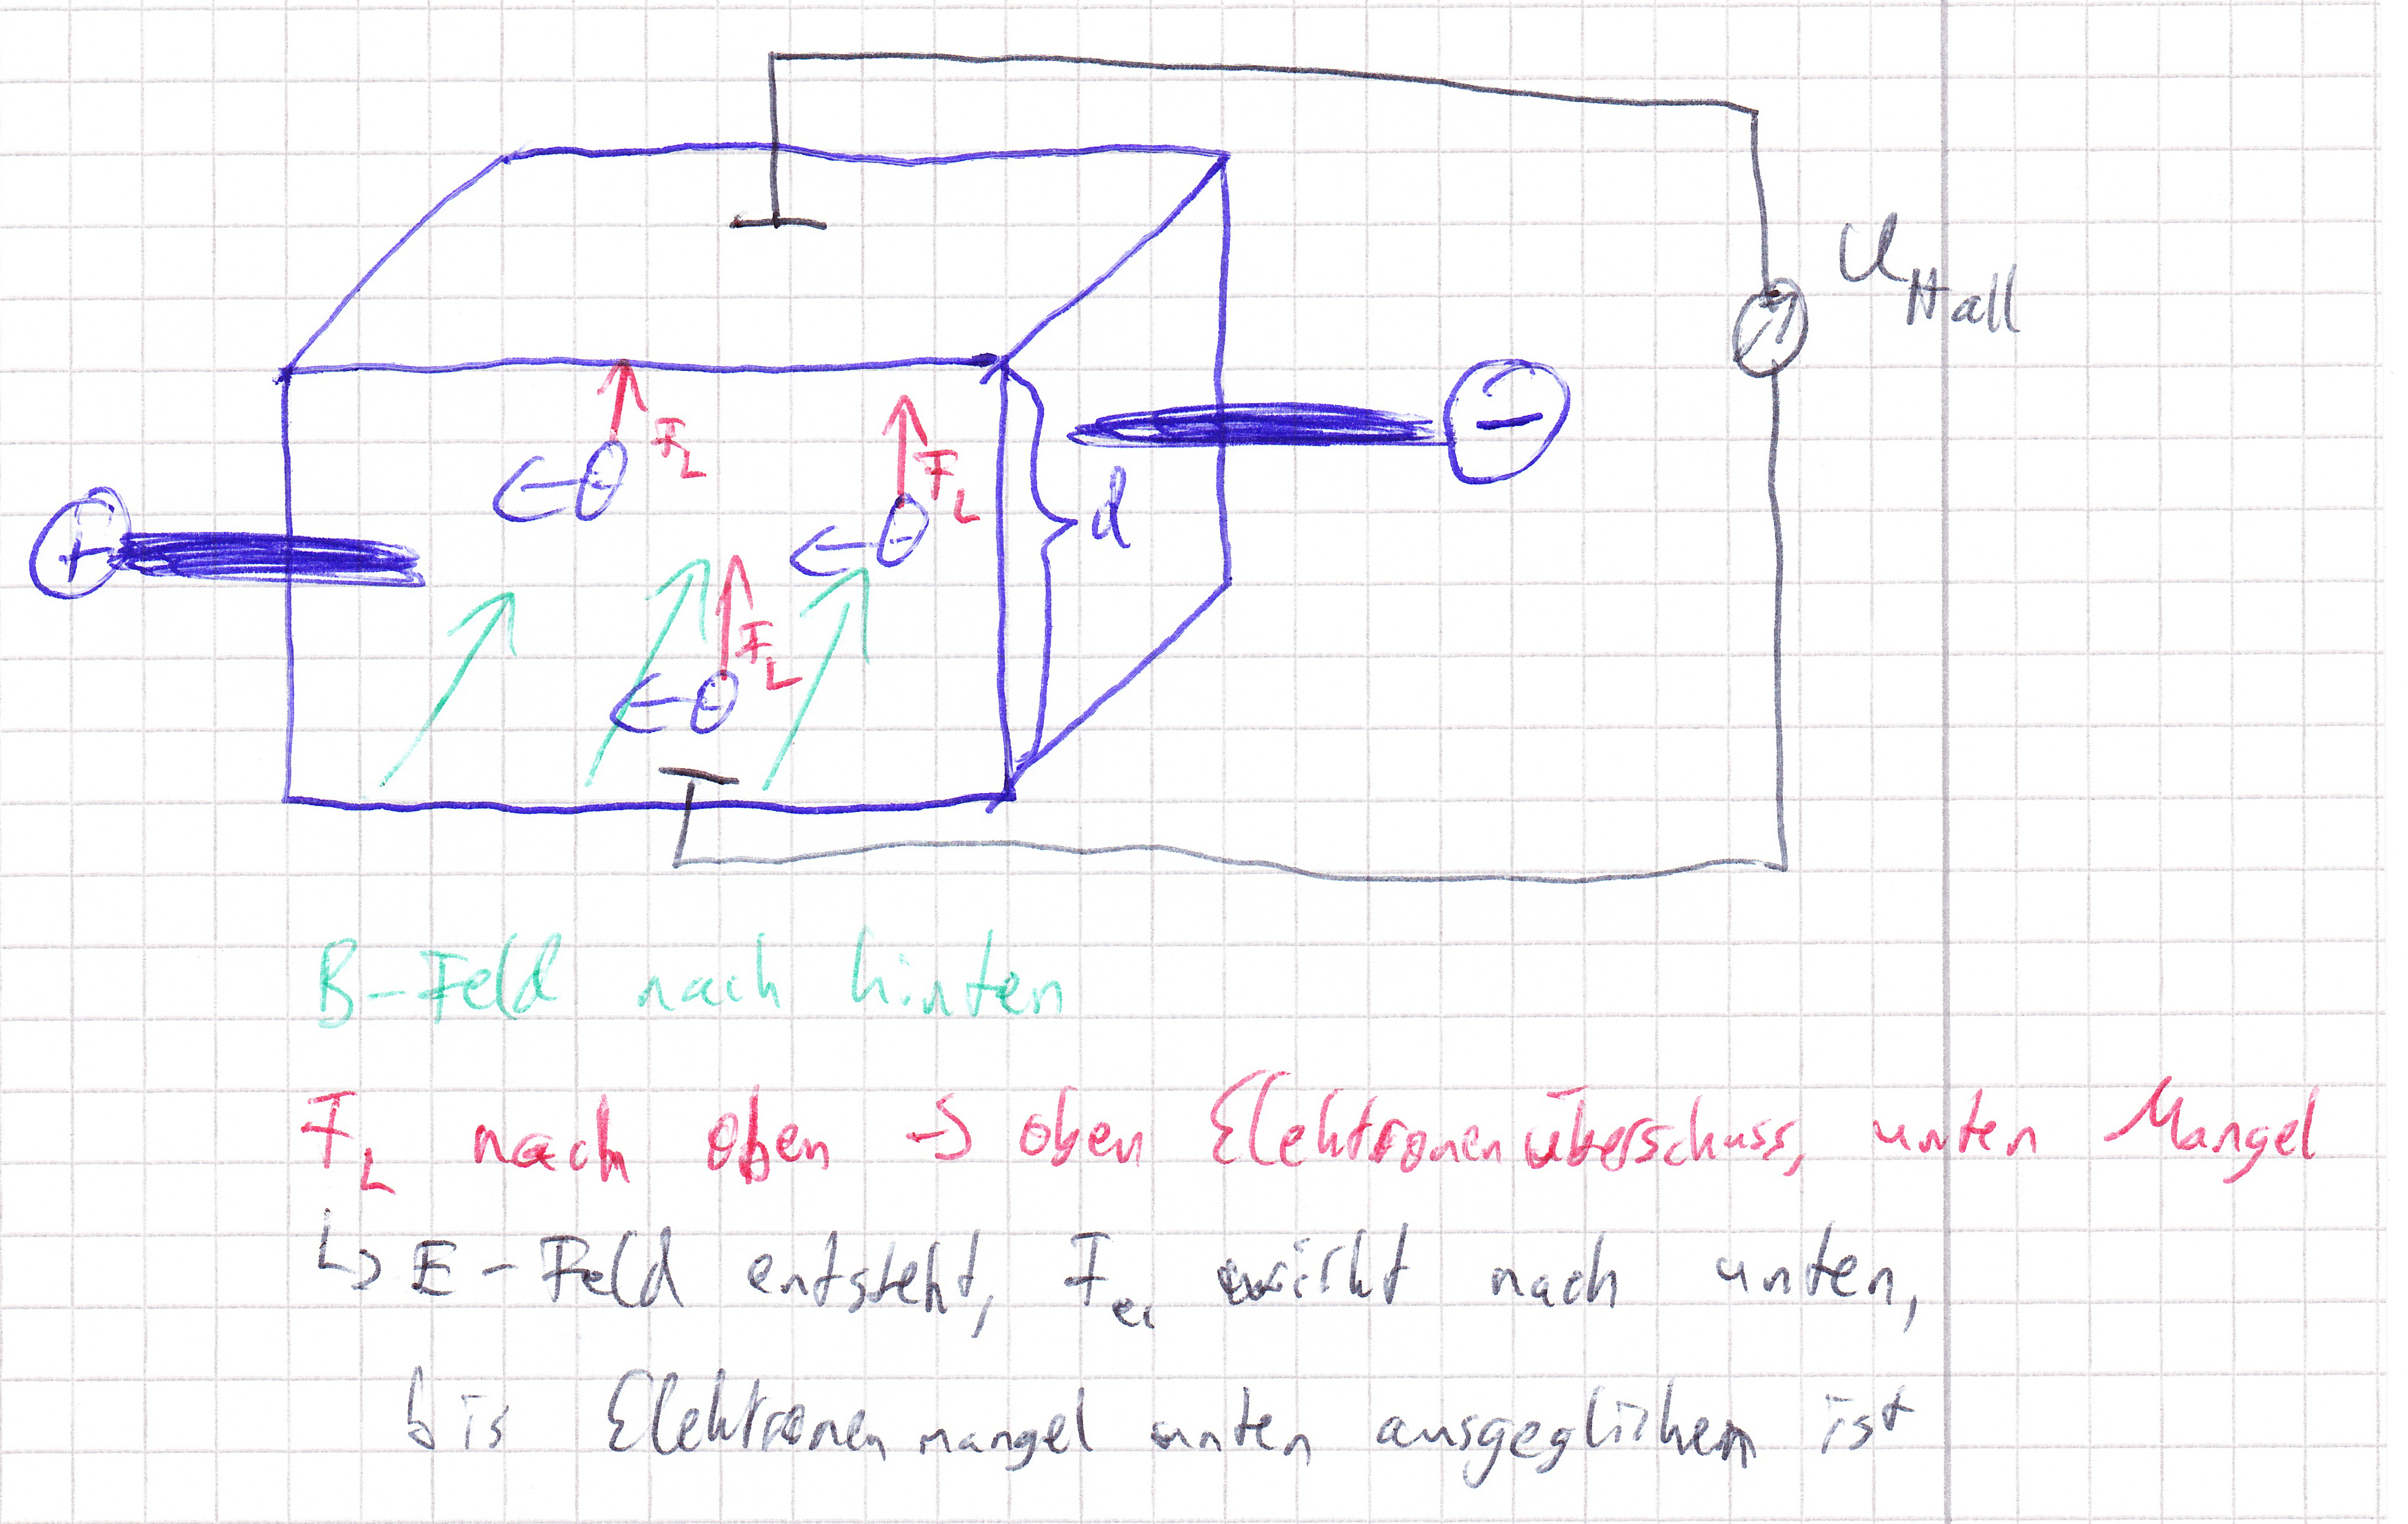 U_Hall
F_L
F_L
+
-
d
F_L
B-Feld nach hinten
F_L nach oben → oben Elektronenüberschuss, unten Mangel
↳ E-Feld entsteht, F_el wirkt nach unten,
bis Elektronenmangel unten ausgeglichen ist